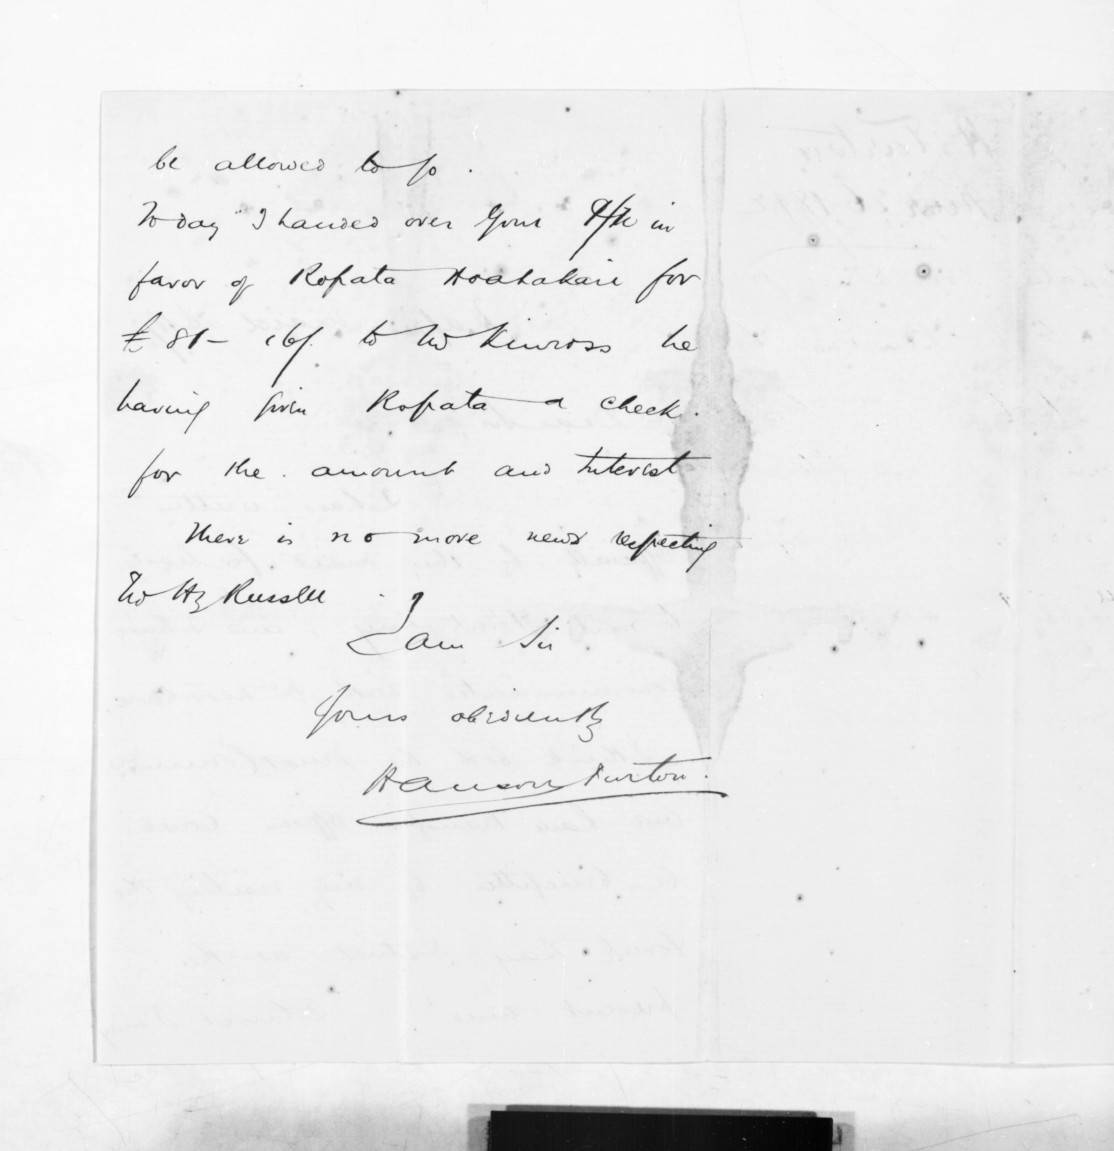 be allowed to go.
To day I handed over your P/N in
favor of Ropata Hoahakari for
£81- 16/. to Mr Kinross he
having given Ropata a check.
for the amount and Interest
There is no more news respecting
Mr Hy Russell.
I am Sir
Yours obediently
Hanson Turton.